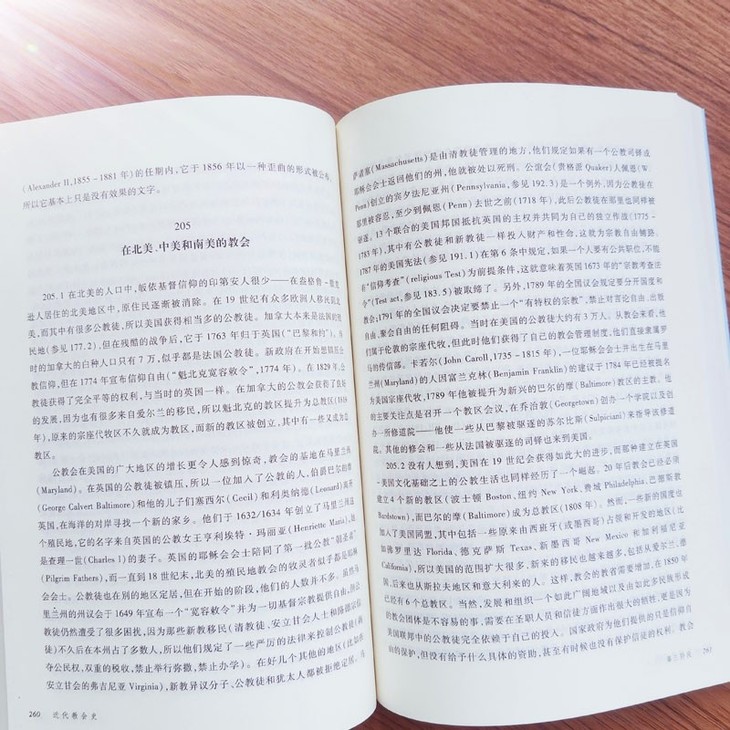 (Alexander II,1855－1881 年)的任期内,它于 1856 年以一种歪曲的形式被公布,
所以它基本上只是没有效果的文字。
205
在北美、中美和南美的教会
205.1 在北美的人口中,皈依基督信仰的印第安人很少——在盎格鲁－撒克
逊人居住的北美地区中,原住民逐渐被清除。在 19 世纪有众多欧洲人移民北
美,而其中有很多公教徒,所以美国获得相当多的公教徒。加拿大本来是法国的殖
民地(参见 177.2),但在残酷的战争后,它于 1763 年归于英国(“巴黎和约”)。当
时的加拿大的白种人口只有 7 万,似乎都是法国公教徒。新政府在开始想镇压公
教信仰,但在 1774 年宣布信仰自由(“魁北克宽容敕令”,1774 年)。在 1829 年,公
教徒获得了完全平等的权利,与当时的英国一样。在加拿大的公教会获得了良好
的发展,因为也有很多来自爱尔兰的移民,所以魁北克的教区提升为总教区(1819
年),原来的宗座代牧区不久就成为教区,而新的教区被创立,其中有一些又成为总
教区。
公教会在美国的广大地区的增长更令人感到惊奇,教会的基地在马里兰州
(Maryland)。在英国的公教徒被镇压,所以一位加入了公教的人,伯爵巴尔的摩
(George Calvert Baltimore)和他的儿子们塞西尔(Cecil)和利奥纳德(Leonard)离开
英国,在海洋的对岸寻找一个新的家乡。他们于 1632/1634 年创立了马里兰州这
个殖民地,它的名字来自英国的公教女王亨利埃特·玛丽亚(Henriette Maria),她
是查理一世(Charles I)的妻子。英国的耶稣会会士陪同了第一批公教“朝圣者”
(Pilgrim Fathers),而一直到 18 世纪末,北美的殖民地教会的牧灵者似乎都是耶稣
会会士。公教徒也在别的地区定居,但在开始的阶段,他们的人数并不多。虽然马
里兰州的州议会于 1649 年宣布一个“宽容敕令”并为一切基督宗教提供自由,但公
教徒仍然遭受了很多困扰,因为那些新教移民(清教徒、安立甘会人士和循道宗信
徒)不久后在本州占了多数人,所以他们规定了一些严厉的法律来控制公教徒(剥
夺公民权,双重的税收,禁止举行弥撒,禁止办学)。在好几个其他的地区(比如在
安立甘会的弗吉尼亚 Virginia),新教异议分子、公教徒和犹太人都被拒绝定居。马
260 近代教会史
萨诸塞(Massachusetts)是由清教徒管理的地方,他们规定如果有一个公教司铎或
耶稣会会士返回他们的州,他就被处以死刑。公谊会(贵格派 Quaker)人佩恩(W.
Penn)创立的宾夕法尼亚州(Pennsylvania,参见 192.3)是一个例外,因为公教徒在
那里被容忍,至少到佩恩(Penn)去世之前(1718 年),此后公教徒在那里也同样被
驱逐。13 个联合的美国邦国抵抗英国的主权并共同为自己的独立作战(1775－
1783 年),其中有公教徒和新教徒一样投入财产和性命,这就为宗教自由铺路。
1787 年的美国宪法(参见 191.1)在第 6 条中规定,如果一个人要有公共职位,不能
有“信仰考查”(religious Test)为前提条件,这就意味着英国 1673 年的“宗教考查法
令”(Test act,参见 183.5)被取缔了。另外,1789 年的全国议会规定要分开国度和
教会;1791 年的全国议会决定要禁止一个“有特权的宗教”,禁止对言论自由、出版
自由、聚会自由的任何阻碍。当时在美国的公教徒大约有 3 万人。从教会来看,他
们属于伦敦的宗座代牧,但此时他们获得了自己的教会管理制度,他们直接隶属罗
马的传信部。卡若尔(John Caroll,1735－1815 年),一位耶稣会会士并出生在马里
兰州(Maryland)的人因富兰克林(Benjamin Franklin)的建议于 1784 年已经被提名
为美国宗座代牧,1789 年他被提升为新兴的巴尔的摩(Baltimore)教区的主教。他
的主要关注点是召开一个教区会议,在乔治敦(Georgetown)创办一个学院以及创
办一所修道院——他使一些从巴黎被驱逐的苏尔比斯(Sulpician)来指导该修道
院。其他的修会和一些从法国被驱逐的司铎也来到美国。
205.2 没有人想到,美国在 19 世纪会获得如此大的进步,而那种建立在英国
-美国文化基础之上的公教生活也同样经历了一个崛起。20 年后教会已经必须
建立 4 个新的教区(波士顿 Boston,纽约 New York、费城 Philadelphia、巴兹敦
Bardstown),而巴尔的摩(Baltimore)成为总教区(1808 年)。然而,一些新的国度也
加入了美国同盟,其中包括一些原来由西班牙(或墨西哥)占领和开发的地区(比
如佛罗里达 Florida、德克萨斯 Texas、新墨西哥 New Mexico 和加利福尼亚
California),所以美国的范围扩大很多,新来的移民也越来越多,包括从爱尔兰、德
国,后来也从斯拉夫地区和意大利来的人。这样,教会的教省需要增加,在 1850 年
已经有 6 个总教区。当然,发展和组织一个如此广阔地域以及由如此多民族形成
的教会团体是不容易的事,需要在圣职人员和信徒方面作出很大的牺牲,更是因为
美国联邦中的公教徒完全依赖于自己的投入。国家政府为他们提供的只是信仰自
由的保护,但没有给予什么具体的资助,甚至有时候也没有保护信徒的权利。教会
261